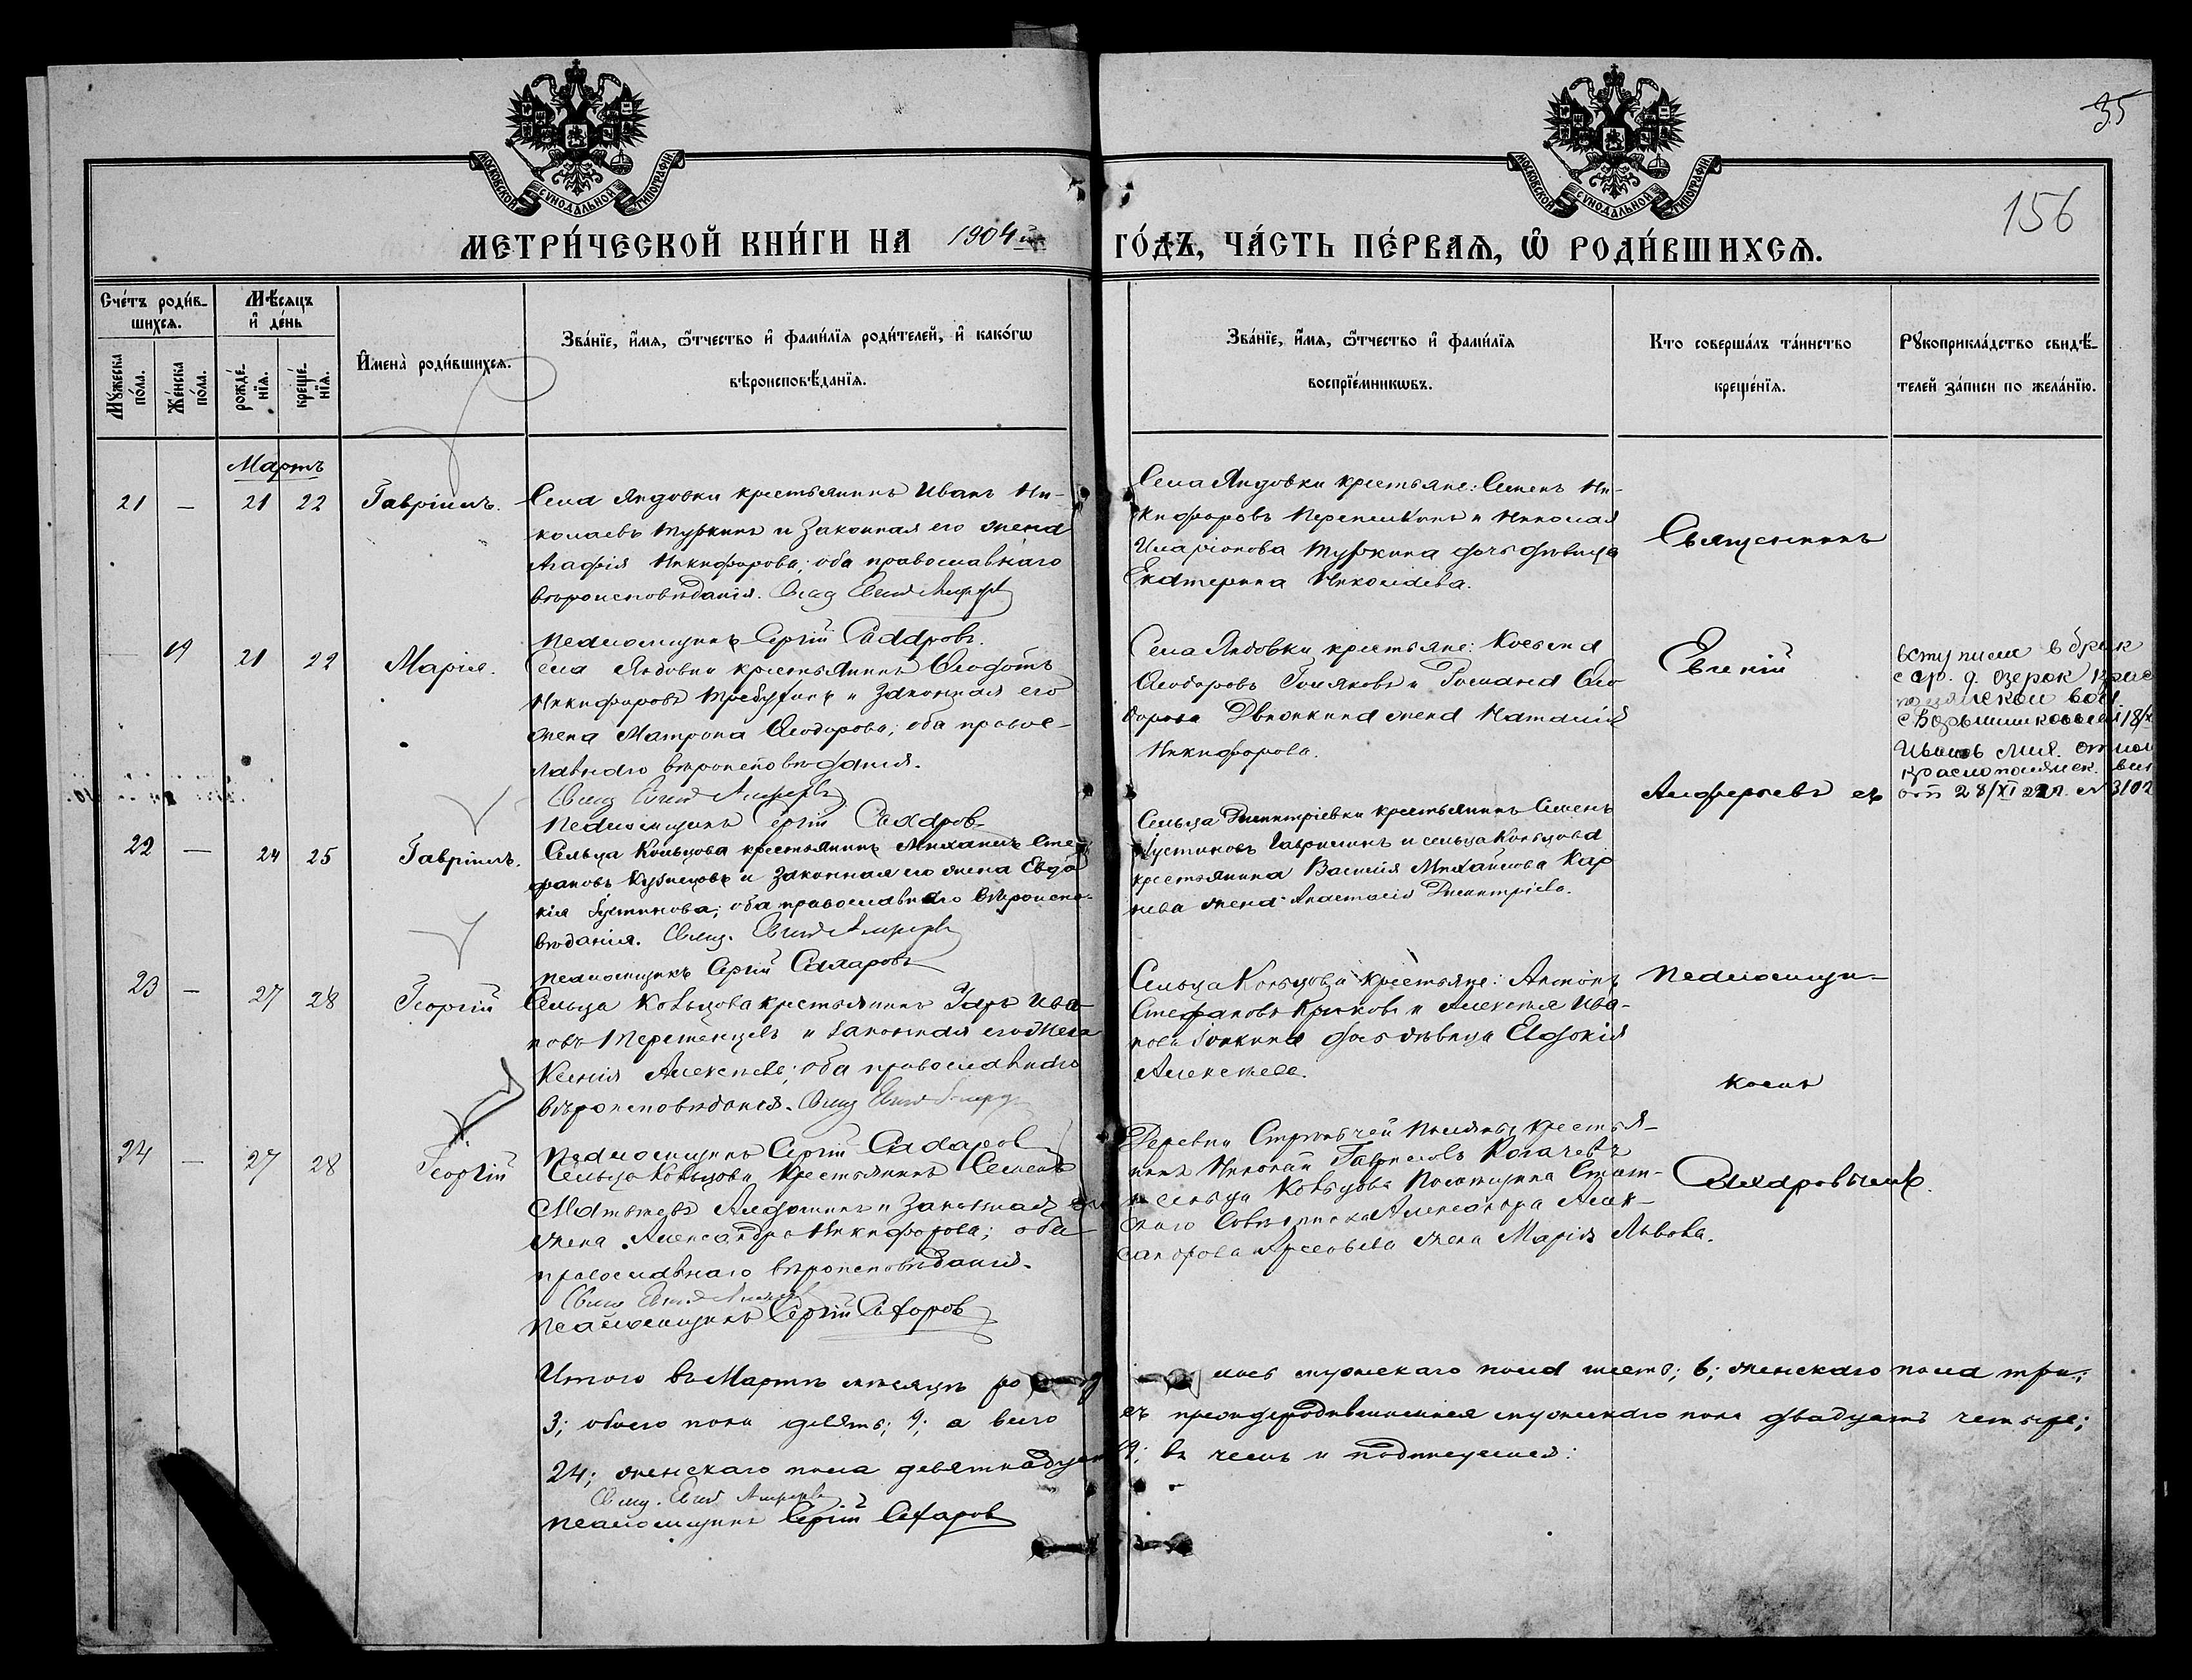 35
156
МОСКОВСКОЙ СѴНОДАЛЬНОЙ ТИПОГРАФІИ.
МОСКОВСКОЙ СѴНОДАЛЬНОЙ ТИПОГРАФІИ.
МЕТРИ́ЧЕСКОЙ КНИ́ГИ НА 1904 й ГО́ДЪ, ЧА́СТЬ ПЕ́РВАЯ, Ѡ҆ РОДИ́ВШИХСЯ.
Сче́тъ роди́в-
шихся.
Мѣ́сяцъ
и҆ де́нь
Мꙋ́жеска
по́ла.
Же́нска
по́ла.
рожде́-
нїя.
креще́-
нїя.
И҆мена̀ роди́вшихся.
Зва́нїе, и҆́мя, ѻ҆́тчество и҆ фами́лїя роди́телей, и҆ како́гѡ
вѣроисповѣ́данїя.
Зва́нїе, и҆́мя, ѻ҆́тчество и҆ фами́лїя
воспрїе́мникѡвъ.
Кто соверша́лъ та́инство
креще́нїя.
Рꙋкоприкла́дство свидѣ́-
телей за́писи по жела́нїю.
Мартъ
21 — 21 22 Гавріилъ.
Села Яндовки крестьянинъ Иванъ Ни-
колаевъ и законная его жена
Агафія Никифорова; оба православнаго
вѣроисповѣданія. Свящ
Псаломщикъ Сергій Сахаровъ.
Села Яндовки крестьяне: Семенъ Ни-
кифоровъ Перепелкинъ и Николая
Иларіонова дочь дѣвица
Екатерина Николаева.
Священникъ
19 21 22 Марія.
Села Яндовки крестьянинъ Ѳеодотъ
Никифоровъ и законная его
жена Матрона Ѳеодорова; оба правос-
лавнаго вѣроисповѣданія.
Свящ
Псаломщикъ Сергій Сахаровъ
Села Яндовки крестьяне:
Ѳеодоровъ Поляковъ и Романа Ѳео
дорова жена Наталія
Никифорова.
Евгеній
Алферьевъ съ
вступила в брак
с гр. д. Озерок Крас
вол.
с 18/
отпол
от 28/XI 22г. № 3102
22 — 24 25 Гавріилъ.
Сельца Кольцова крестьянинъ Михаилъ Сте-
фановъ Кузнецовъ и законная его жена Евдо
кія Іустинова; оба православнаго вѣроиспо-
вѣданія. Свящ.
Псаломщикъ Сергій Сахаровъ
Сельца Димитріевки крестьянинъ Семенъ
Іустиновъ Гаврилинъ и сельца Кольцова
крестьянина Василія Михайлова Кар
жена Анастасія Димитріева.
23 — 27 28 Георгій
Сельца Кольцова крестьянинъ Ива-
новъ и законная его жена
Ксенія Алексѣева; оба православнаго
вѣроисповѣданія. Свящ
Псаломщикъ Сергій Сахаровъ
Сельца Кольцова крестьяне: Антонъ
Стефановъ и Алексѣя Ива-
нова дочь дѣвица Евдокія
Алексѣева.
Псаломщи-
комъ
24 — 27 28 Георгій
Сельца Кольцова крестьянинъ Семенъ
Матвѣевъ и законная его
жена Александра Никифорова; оба
православнаго вѣроисповѣданія.
Свящ
Псаломщикъ Сергій Сахаровъ
Деревни Поляны крестья-
нинъ Николай Гавриловъ
и сельца Кольцова помѣщика Стат-
скаго Совѣтника Александра Алек-
сандрова жена Марія Львова.
Сахаровымъ.
Итого въ Мартѣ мѣсяцѣ лось мужескаго пола шесть; 6; женскаго пола три;
3; обоего пола девять; 9; а всего съ преждеродившимися мужескаго пола двадцать четыре;
24; женскаго пола девятнадцать 19; въ чемъ и подписуемся:
Свящ.
Псаломщикъ Сергій Сахаровъ